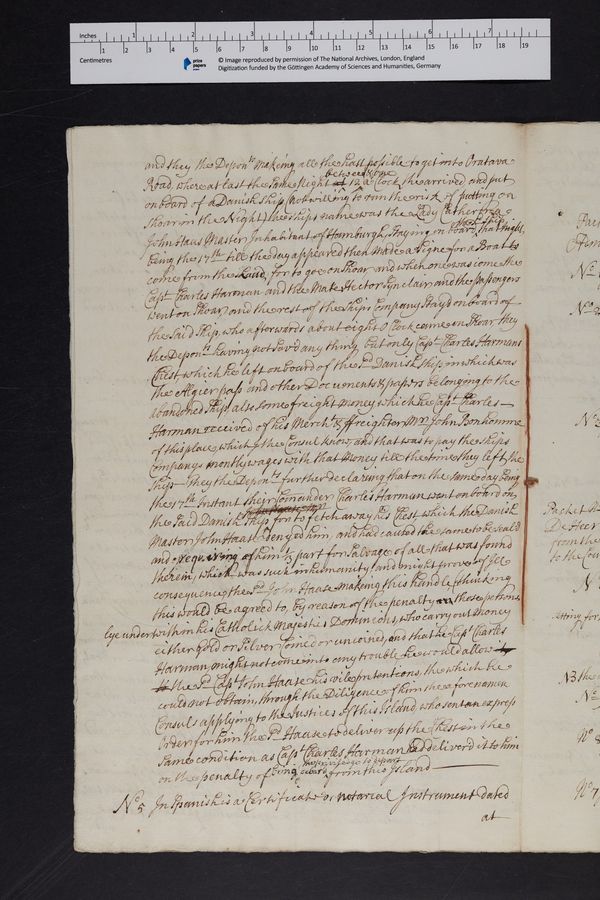 inches 1 2 3 4 5 6 7
Centimetres 1 2 3 4 5 6 7 8 9 10 11 12 13 14 15 16 17 18 19
prize papers
© Image reproduced by permission of The National Archives, London, England
Digitization funded by the Göttingen Academy of Sciences and Humanities, Germany
and they the Depon:ts making all the hast possible to get into Oratava
between one
Road, where at last the same Night at 12 a Clock, she arrived and put
on board of a Danish Ship, not willing to run the risk of putting on
Shoar in the Night, the ships name was the Lady Catherina
John Haus Master Inhabitant of Hamburgh, staying on board that night
being the 17th till the day appeared then made a Signe for a Boat to
come from the for to goe on Shoar, and when one was come the
Capt Charles Harman and the Mate Hector Synclair and the passengers
went on Shoar, and the rest of the Ships Company Stayd on board of
the Said Ship, who afterwards about eight o Clock came on Shoar they
the Depon:ts having not Sav'd any thing but only Capt Charles Harmans
Chest, which he left on board of the sd Danish Ship, in which was
the Algier pass and other Documents & papers belonging to the
abandoned Ship also some freight money which the Capt Charles
Harman received of his Merch:t & freighter Mr John Bonhomme
of this place, which the Consul know, and that was to pay the Ships
Companys montly wages with that Money till the time they left the
Ship they the Depon:ts further declaring that on the same day being
the 17th Instant their Comander Charles Harman went on board on
the Said Danish Ship for to fetch away his Chest which the Danish
Master John Haase denyed him, and had caused the same to be seald
and requiring of him part for Salvage of all that was found
therein, which was such inhumanity, and might prove of ill
consequence the sd John Haase making this handle thinking
this would be agreed to, by reason of the penalty those persons
lye under within his Catholick Majesties Dominions, who carry out Money
either Gold or Silver Coined or uncoined, and that he Capt Charles
Harman might not come into any trouble he would allow
the sd Capt John Haase his vile intentions, the which he
could not obtain, through the Diligence of him the aforenamed
Consul applying to the Justice of this Island who sent an express
Order for him the sd Haase to deliver up the Chest in the
same condition as Capt Charles Harman had deliverd it to him
on the penalty of being from this Island
No 5 In Spanish is a Certificate or notarial Instrument dated
at